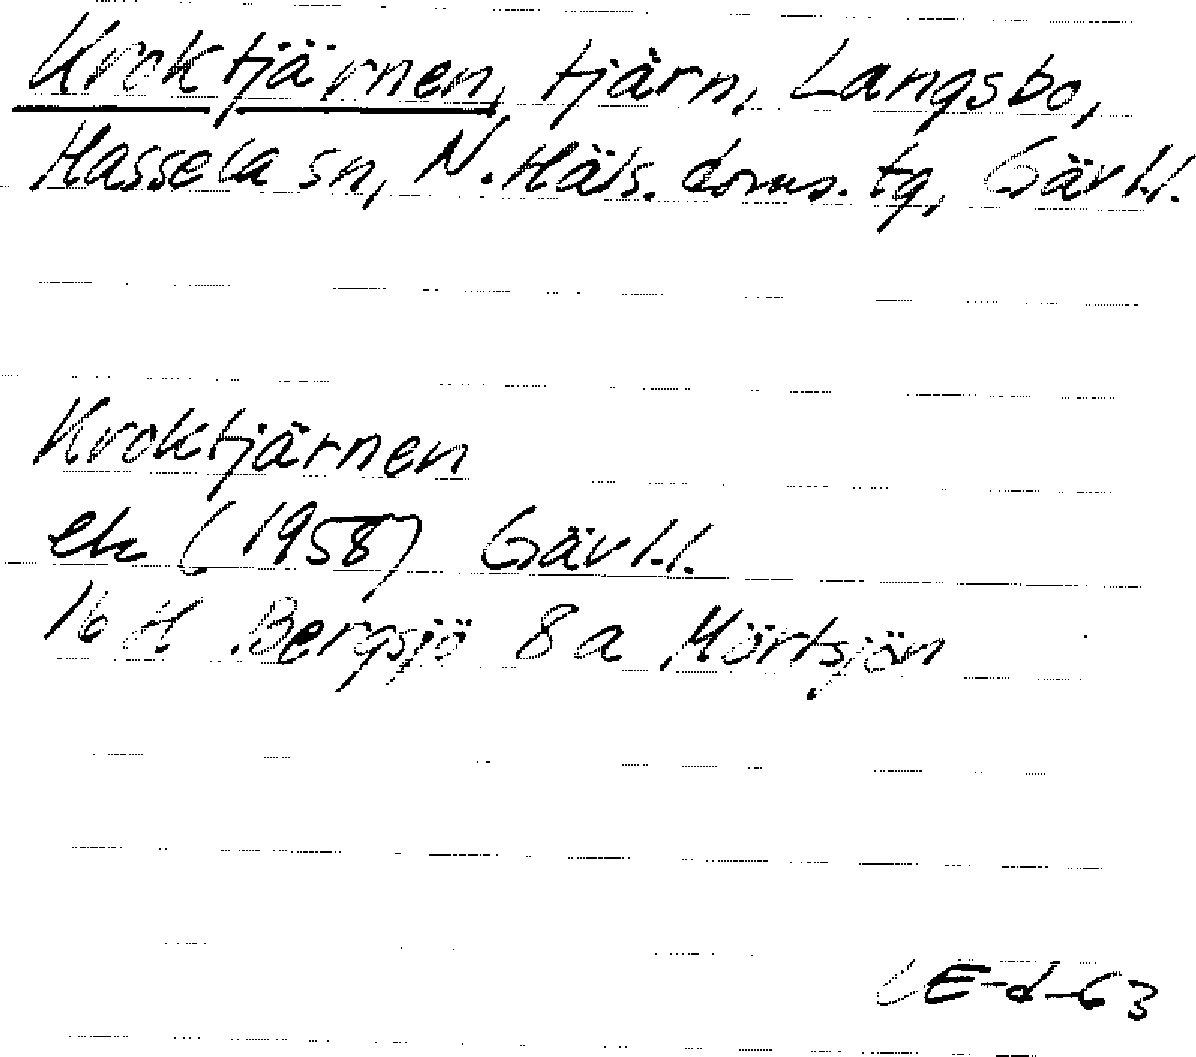 Kroktjärnen, tjärn, Långsbo,
Hassela sn, N. Häls. doms. tg, Gävl.l.
Kroktjärnen
ek (1958) Gävl.l.
16 H Bergsjö 8a Mörtsjön